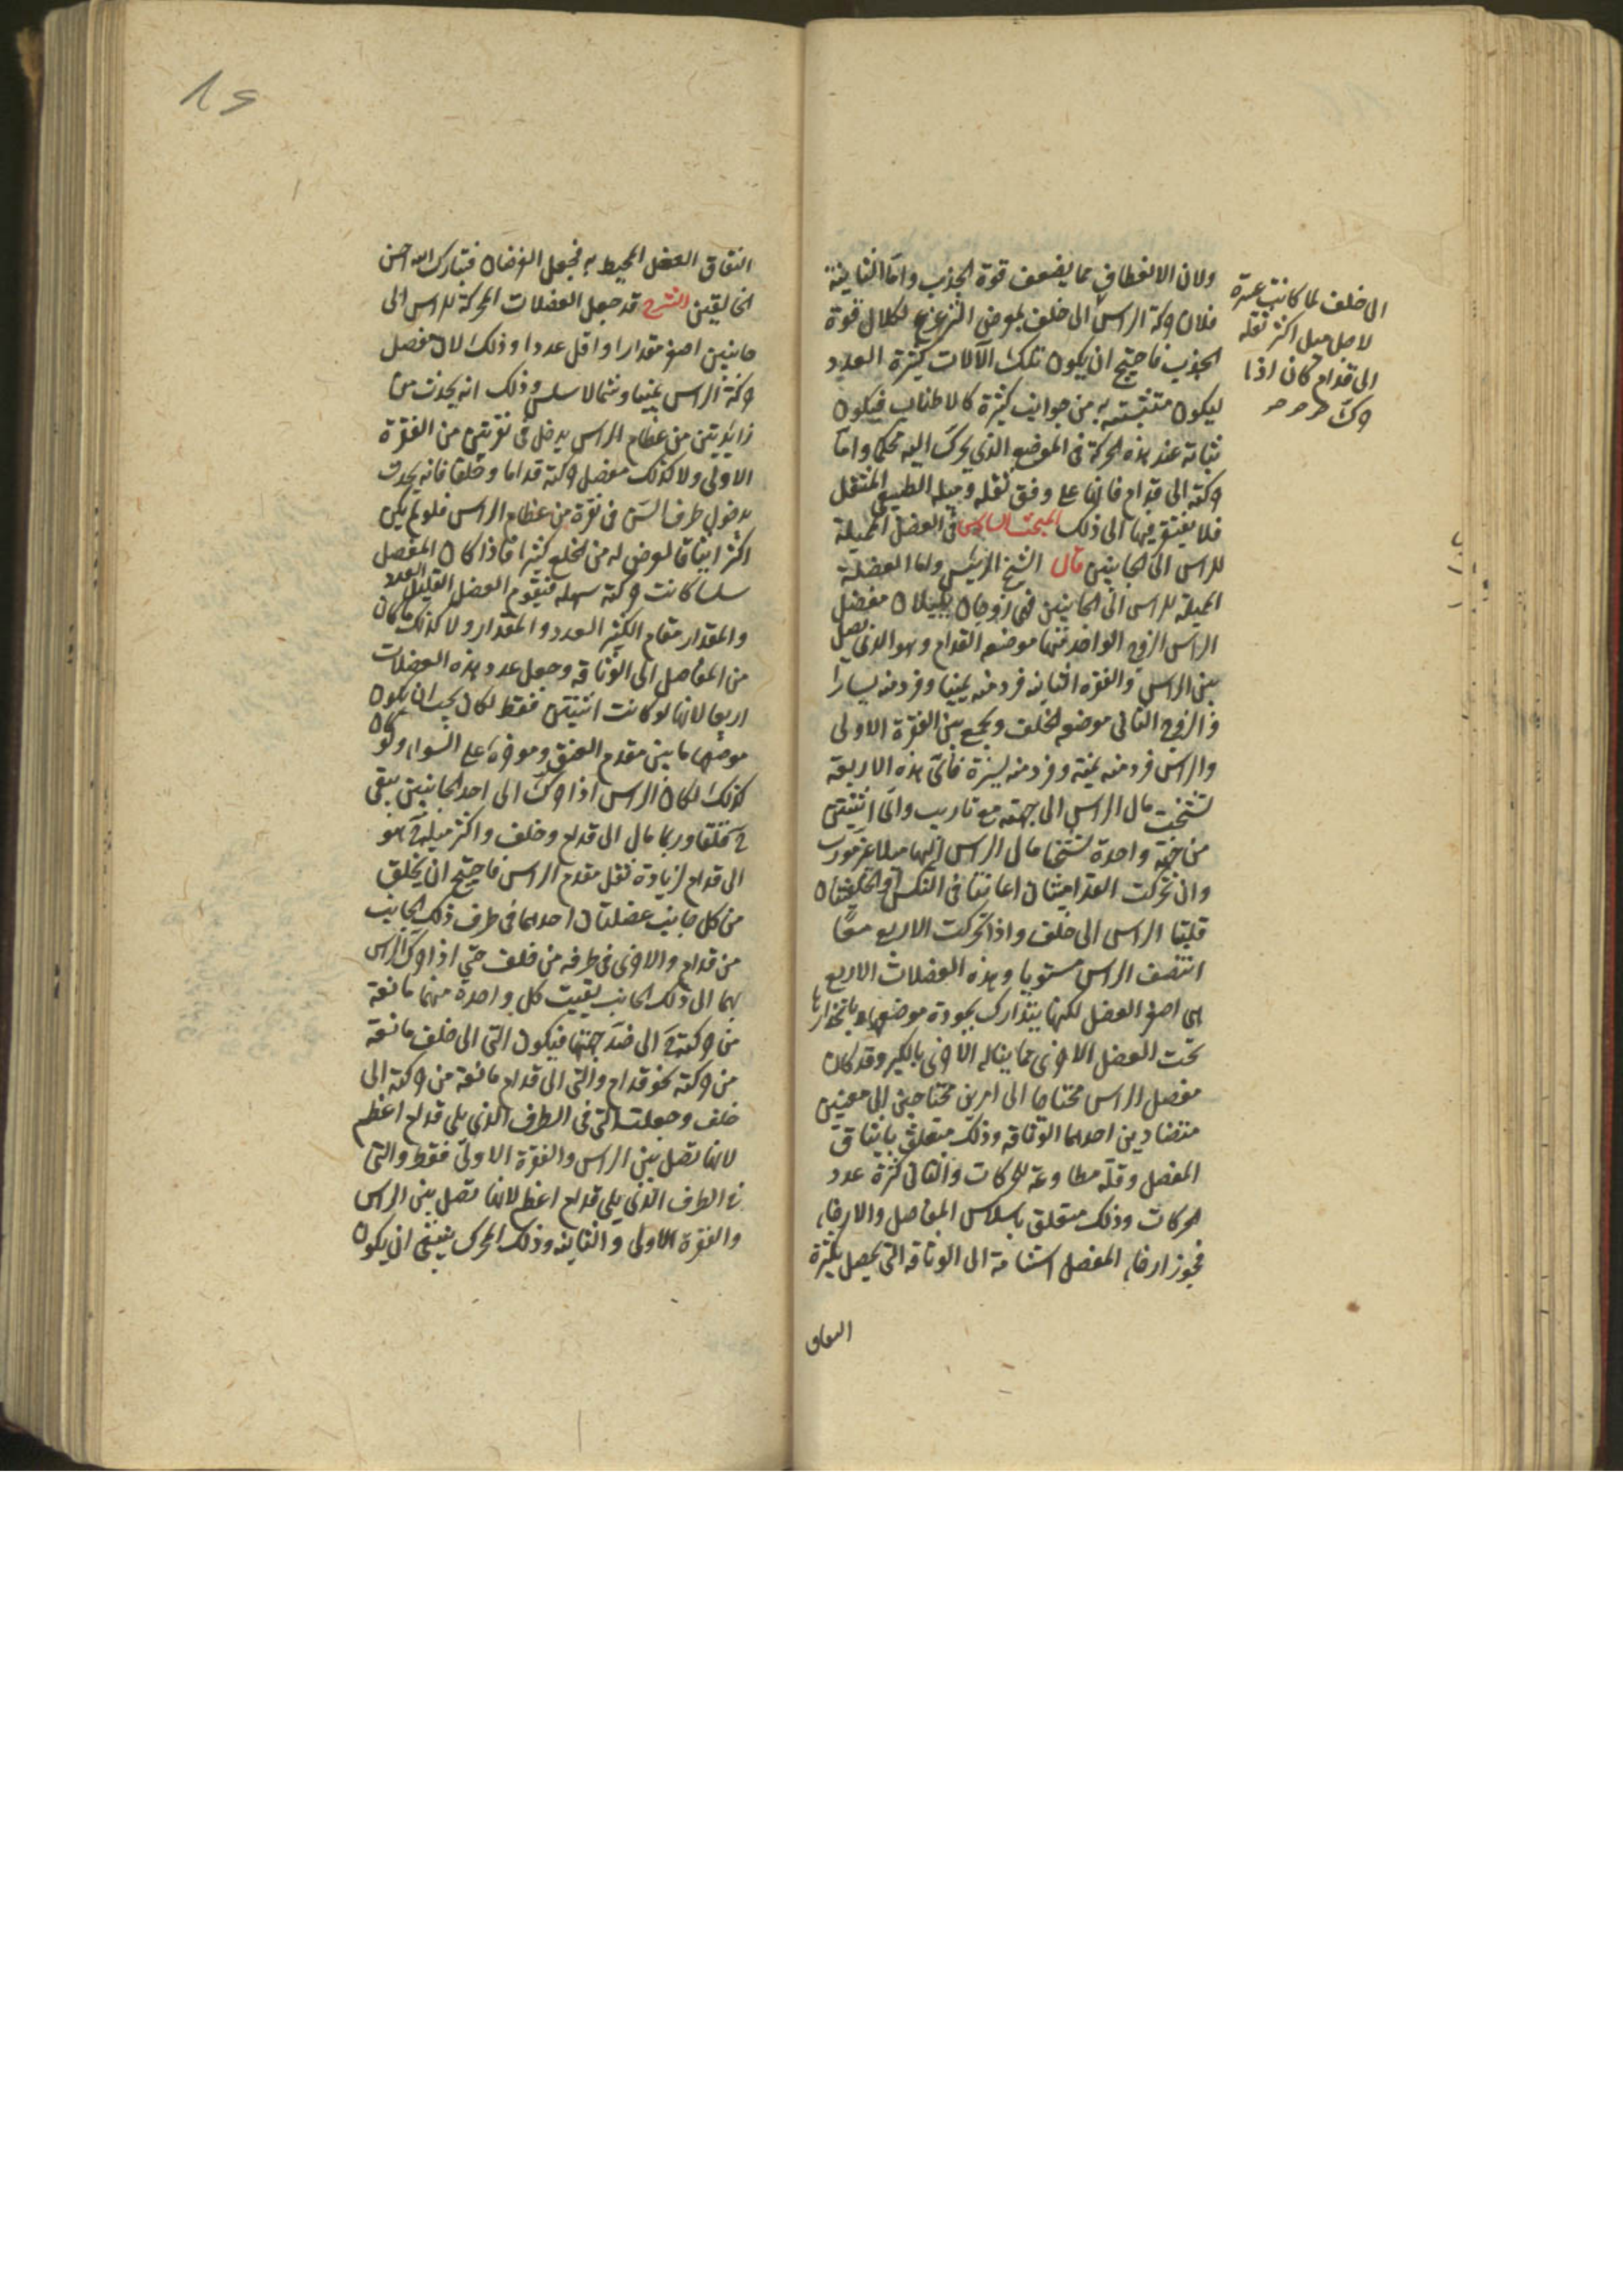 ولان الانعطاف مما يضعف قوة الجذب واما الثانية
فلان حركة الراس الى خلف لموضى التزعزع لكلال قوة
الجذب فاحتيج ان يكون تلك الآلات كثيرة العدد
ليكون متثبته به من جوانب كثيرة كالاطناب فيكون
ثباته عند هذه الحركة فى الموضع الذى يحرك اليه محكما واما
حركته الى قدام فانها على وفق ثقله وميله الطبيعى المتنقل
فلا يفتقر فيها الى ذلك المبحث السادس فى العضل المميلة
للراس الى الجانبين قال الشيخ الرئيس واما العضلة
المميلة للراس الى الجانبين فهى زوجان يلييلان مفصل
الراس الزوج الواحد منهما موضعه القدام وهو الذى يصل
بين الراس والفقرة الثانية فرد منه يمينا وفرد منه يسارا
والزوج الثانى موضعه الخلف ويجمع بين الفقرة الاولى
والراس فرد منه يمنة وفرد منه يسرة فاى هذه الاربعة
تشنجت مال الراس الى جهته مع تاريب واى اثنتين
من جهة واحدة تشنجا مال الراس اليهما ميلا غير مورب
وان تحركت القداميتان اعانتا فى التنكيس والخلفيتان
قلبتا الراس الى خلف واذا تحركت الاربع معا
انتصب الراس مستويا وهذه العضلات الاربع
هى اصغر العضل لكنها يتدارك بجودة موضعها وبانحرازها
تحت العضل الاخرى ما يناله الاخرى بالكبر وقد كان
مفصل الراس محتاجا الى امرين محتاجين الى معنيين
متضادين احدهما الوثاقة وذلك متعلق بايثاق
المفصل وقلة مطاوعته للحركات والثانى كثرة عدد
الحركات وذلك متعلق باسلاس المفاصل والارخاء
فجوز ارخاء المفصل استنامة الى الوثاقة التى يحصل بكثرة
التفاف
الى خلف لما كانت عسرة
لاجل ميل اكثر ثقله
الى قدام كان اذا
حرك
التفاف العضل المحيط به فجعل الغرضان فتبارك الله احسن
الخالقين الشرح قد جعل العضلات المحركة للراس الى
جانبين اصغر مقدارا واقل عددا وذلك لان مفصل
حركة الراس يمينا وشمالا سلس وذلك انه يحدث من
زائدتين من عظام الراس يدخل فى نقرتين من الفقرة
الاولى ولا كذلك مفصل حركته قداما وخلفا فانه يحدث
بدخول طرف السن فى نقرة من عظام الراس فلو لم يكن
اكثر ايثاقا لعرض له من الخلع كثيرا فاذا كان المفصل
سلسا كانت حركته سهلة فيقوم العضل القليل العدد
والمقدار مقام الكثير العدد والمقدار ولا كذلك ما كان
من المفاصل الى الوثاقة وجعل عدد هذه العضلات
اربعا لانها لو كانت اثنتين فقط لكان يجب ان يكون
موضعها ما بين مقدم العنق وموخره على السواء ولو كان
كذلك لكان الراس اذا حرك الى احد الجانبين يبقى
قلقا وربما مال الى قدام وخلف واكثر ميله هو
الى قدام لزيادة ثقل مقدم الراس فاحتيج ان يخلق
من كل جانب عضلتان احدهما فى طرف ذلك الجانب
من قدام والاخرى فى طرفه من خلف حتى اذا حرك الراس
بهما الى ذلك الجانب بقيت كل واحدة منهما مانعة
من حركته الى ضد جهتها فيكون التى الى خلف مانعة
من حركته نحو قدام والتى الى قدام مانعة من حركته الى
خلف وجعلت التى فى الطرف الذى يلى قدام اعظم
لانها تصل بين الراس والفقرة الاولى فقط والتى
فى الطرف الذى يلى قدام اعظم لانها تصل بين الراس
والفقرة الاولى والثانية وذلك المحرك ينبغى ان يكون